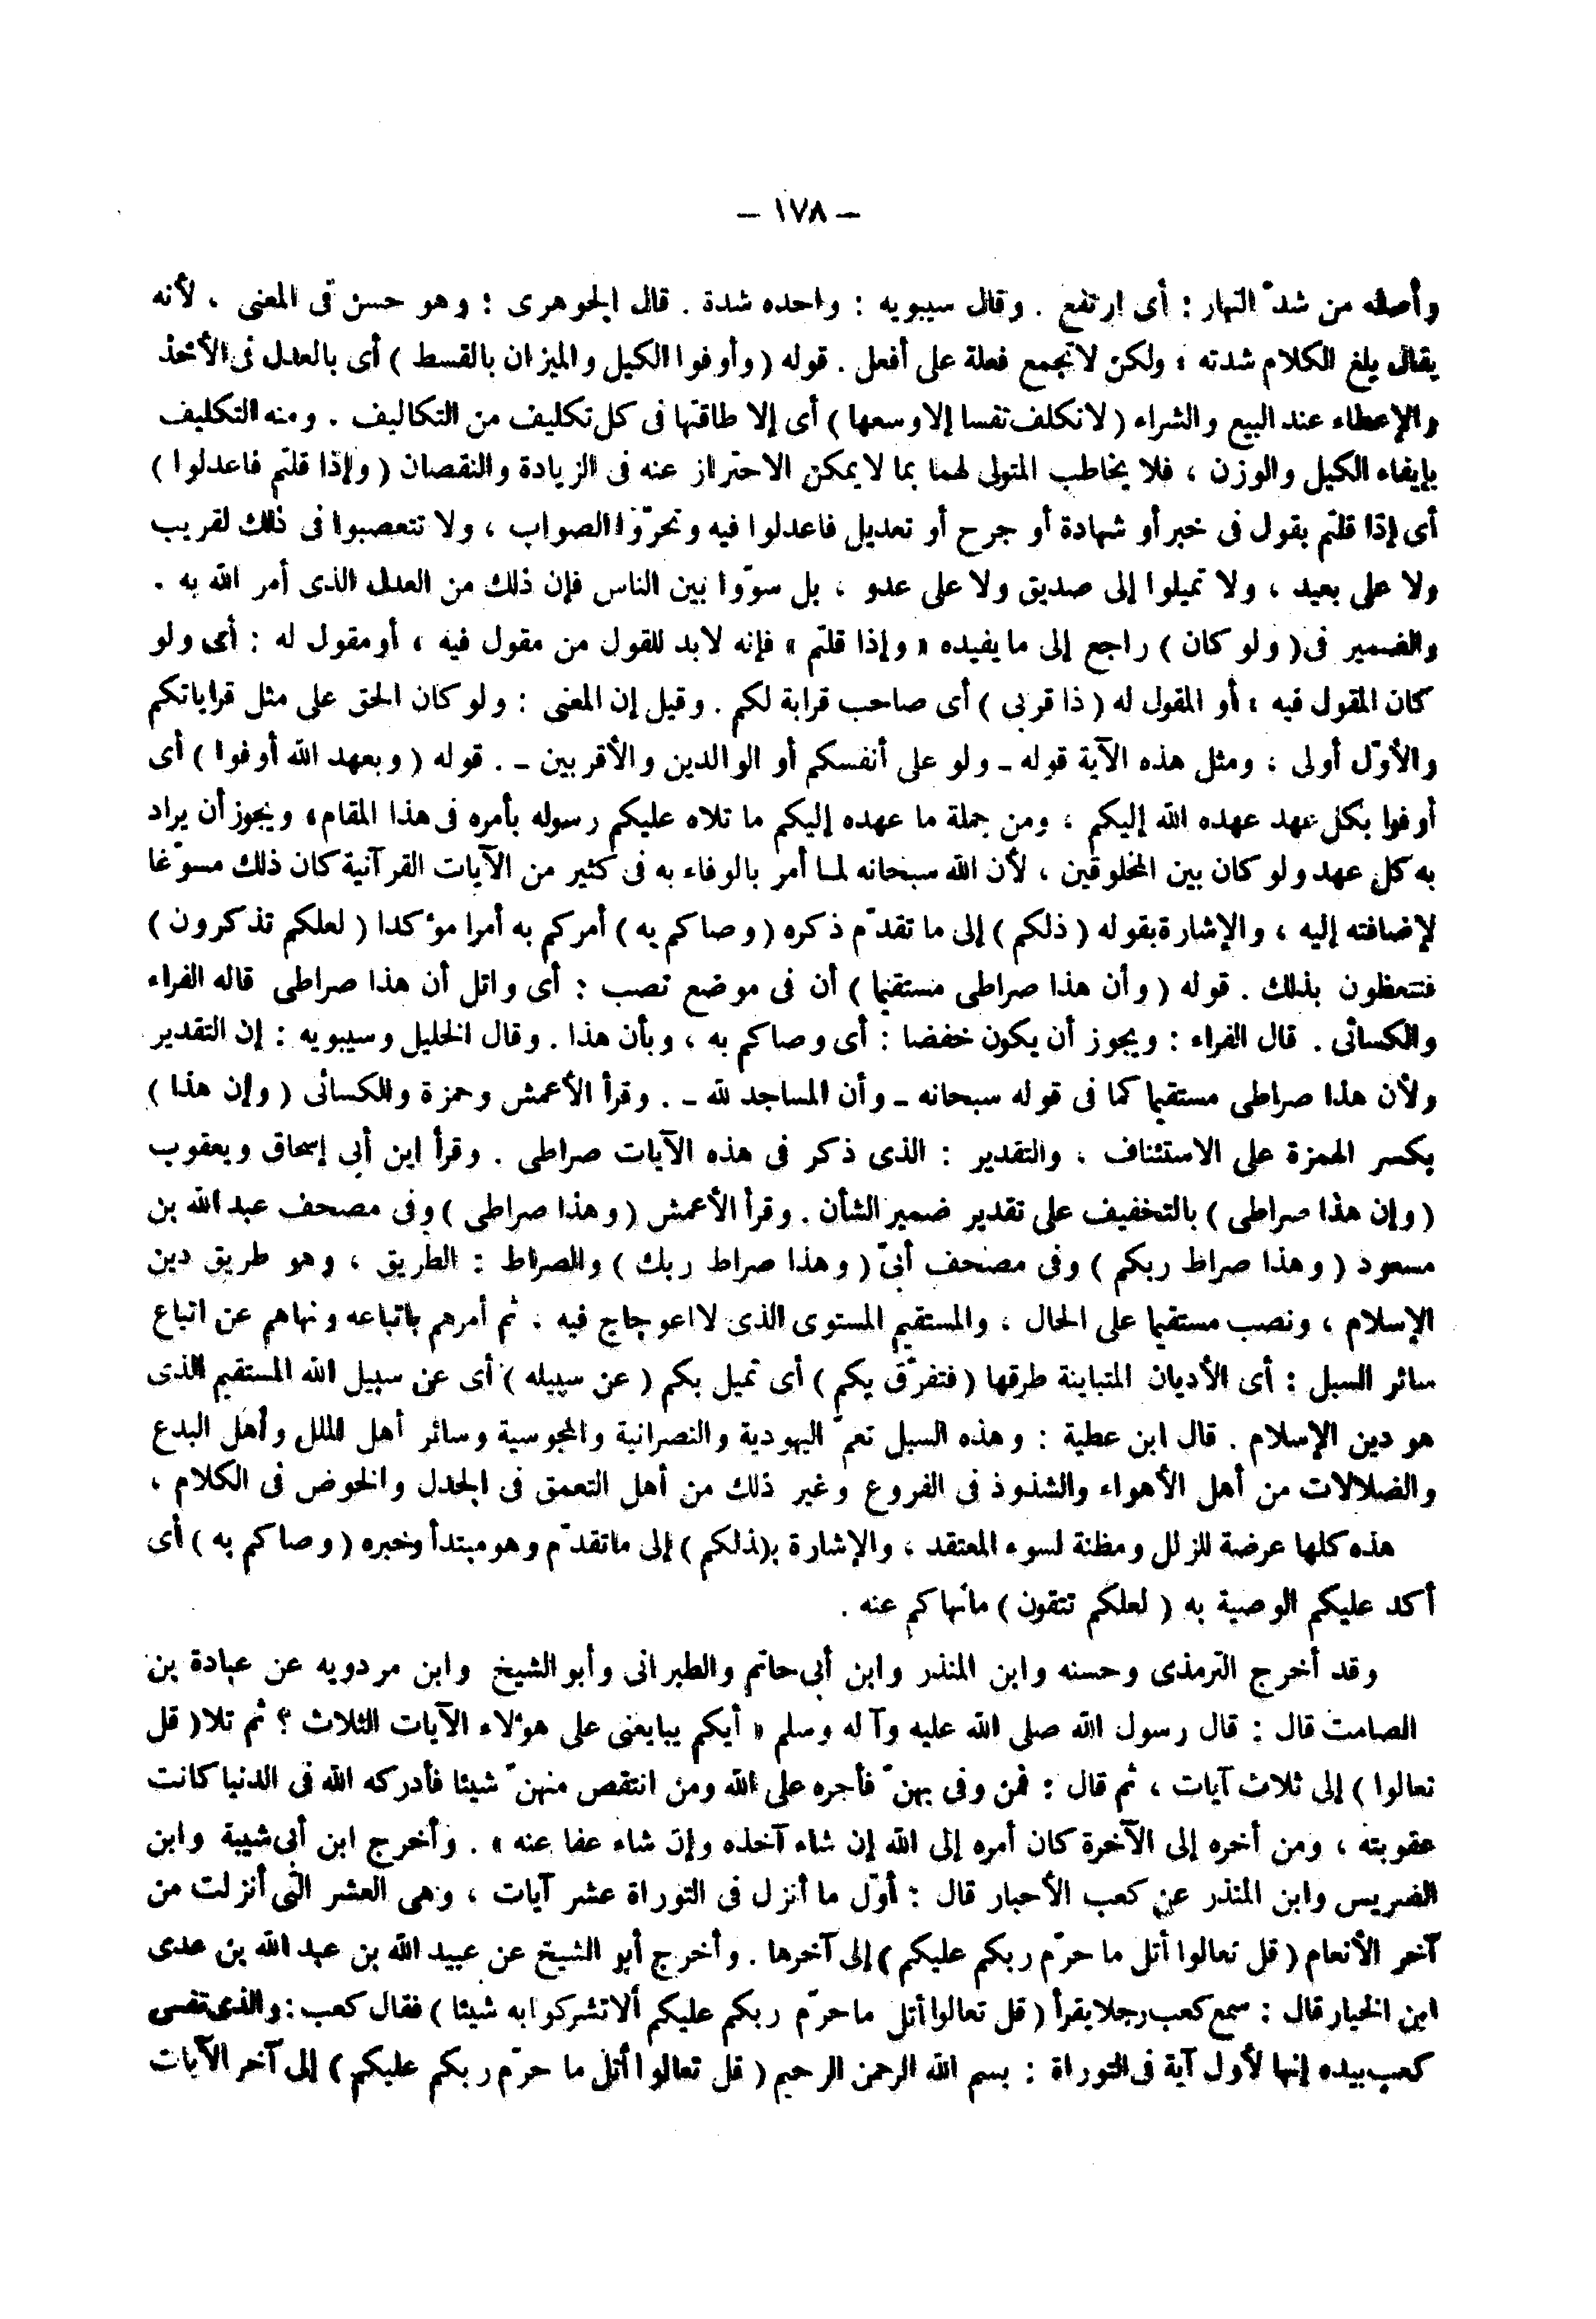 — ١٧٨ —
وأصله من شدّ النهار : أى ارتفع . وقال سيبويه : واحده شدة . قال الجوهرى : وهو حسن فى المعنى ، لأنه
يقال بلغ الكلام شدته ، ولكن لا تجمع فعلة على أفعل . قوله ( وأوفوا الكيل والميزان بالقسط ) أى بالعدل فى الأخذ
والإعطاء عند البيع والشراء ( لا نكلف نفسا إلا وسعها ) أى إلا طاقتها فى كل تكليف من التكاليف . ومنه التكليف
بإيفاء الكيل والوزن ، فلا يخاطب المتولى لهما بما لا يمكن الاحتراز عنه فى الزيادة والنقصان ( وإذا قلتم فاعدلوا )
أى إذا قلتم بقول فى خبر أو شهادة أو جرح أو تعديل فاعدلوا فيه وتحرّوا الصواب ، ولا تتعصبوا فى ذلك لقريب
ولا على بعيد ، ولا تميلوا إلى صديق ولا على عدو ، بل سوّوا بين الناس فإن ذلك من العدل الذى أمر الله به .
والضمير فى ( ولو كان ) راجع إلى ما يفيده « وإذا قلتم » فإنه لابد للقول من مقول فيه ، أو مقول له : أى ولو
كان المقول فيه ، أو المقول له ( ذا قربى ) أى صاحب قرابة لكم . وقيل إن المعنى : ولو كان الحق على مثل قراباتكم
والأوّل أولى ، ومثل هذه الآية قوله ـ ولو على أنفسكم أو الوالدين والأقربين ـ . قوله ( وبعهد الله أوفوا ) أى
أوفوا بكل عهد عهده الله إليكم ، ومن جملة ما عهده إليكم ما تلاه عليكم رسوله بأمره فى هذا المقام ، ويجوز أن يراد
به كل عهد ولو كان بين المخلوقين ، لأن الله سبحانه لما أمر بالوفاء به فى كثير من الآيات القرآنية كان ذلك مسوّغا
لإضافته إليه ، والإشارة بقوله ( ذلكم ) إلى ما تقدّم ذكره ( وصاكم به ) أمركم به أمرا مؤكدا ( لعلكم تذكرون )
فتتعظون بذلك . قوله ( وأن هذا صراطى مستقيما ) أن فى موضع نصب : أى واتل أن هذا صراطى قاله الفراء
والكسائى . قال الفراء : ويجوز أن يكون خفضا : أى وصاكم به ، وبأن هذا . وقال الخليل وسيبويه : إن التقدير
ولأن هذا صراطى مستقيما كما فى قوله سبحانه ـ وأن المساجد لله ـ . وقرأ الأعمش وحمزة والكسائى ( وإن هذا )
بكسر الهمزة على الاستئناف ، والتقدير : الذى ذكر فى هذه الآيات صراطى . وقرأ ابن أبى إسحاق ويعقوب
( وإن هذا صراطى ) بالتخفيف على تقدير ضمير الشأن . وقرأ الأعمش ( وهذا صراطى ) وفى مصحف عبد الله بن
مسعود ( وهذا صراط ربكم ) وفى مصحف أبىّ ( وهذا صراط ربك ) والصراط : الطريق ، وهو طريق دين
الإسلام ، ونصب مستقيما على الحال ، والمستقيم المستوى الذى لا اعوجاج فيه ، ثم أمرهم باتباعه ونهاهم عن اتباع
سائر السبل : أى الأديان المتباينة طرقها ( فتفرّق بكم ) أى تميل بكم ( عن سبيله ) أى عن سبيل الله المستقيم الذى
هو دين الإسلام . قال ابن عطية : وهذه السبل تعمّ اليهودية والنصرانية والمجوسية وسائر أهل الملل وأهل البدع
والضلالات من أهل الأهواء والشذوذ فى الفروع وغير ذلك من أهل التعمق فى الجدل والخوض فى الكلام ،
هذه كلها عرضة للزلل ومظنة لسوء المعتقد ، والإشارة بـ ( ذلكم ) إلى ما تقدّم وهو مبتدأ وخبره ( وصاكم به ) أى
أكد عليكم الوصية به ( لعلكم تتقون ) ما نهاكم عنه .
وقد أخرج الترمذى وحسنه وابن المنذر وابن أبى حاتم والطبرانى وأبو الشيخ وابن مردويه عن عبادة بن
الصامت قال : قال رسول الله صلى الله عليه وآله وسلم « أيكم يبايعنى على هؤلاء الآيات الثلاث ؟ ثم تلا ( قل
تعالوا ) إلى ثلاث آيات ، ثم قال : فمن وفى بهنّ فأجره على الله ومن انتقص منهنّ شيئا فأدركه الله فى الدنيا كانت
عقوبته ، ومن أخره إلى الآخرة كان أمره إلى الله إن شاء آخذه وإن شاء عفا عنه » . وأخرج ابن أبى شيبة وابن
الضريس وابن المنذر عن كعب الأحبار قال : أوّل ما أنزل فى التوراة عشر آيات ، وهى العشر التى أنزلت من
آخر الأنعام ( قل تعالوا أتل ما حرّم ربكم عليكم ) إلى آخرها . وأخرج أبو الشيخ عن عبيد الله بن عبد الله بن عدى
ابن الخيار قال : سمع كعب رجلا يقرأ ( قل تعالوا أتل ما حرّم ربكم عليكم ألا تشركوا به شيئا ) فقال كعب : والذى نفس
كعب بيده إنها لأول آية فى التوراة : بسم الله الرحمن الرحيم ( قل تعالوا أتل ما حرّم ربكم عليكم ) إلى آخر الآيات